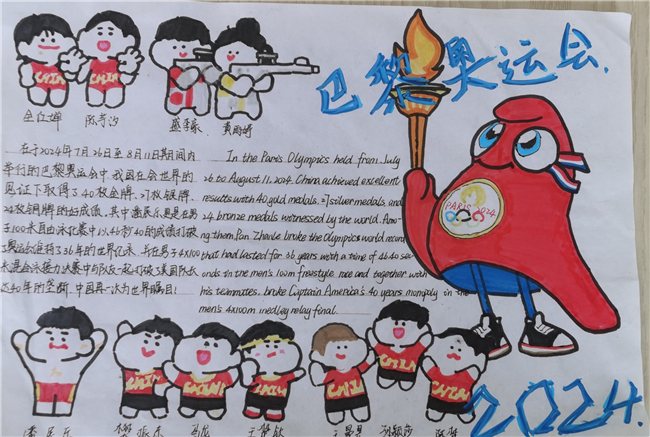 巴黎奥运会
CHIN
CHIN
全红婵
陈芋汐
盛李豪
黄雨婷
在于2024年7月26日至8月11日期间内
举行的巴黎奥运会中我国在会世界的
见证下取得了40枚金牌、27枚银牌、
24枚铜牌的好成绩,其中潘展乐更是在男
子100米自由泳比赛中以46秒40的成绩打破
了奥运会保持了36年的世界纪录,并在男子4X100
米混合泳接力决赛中与队友一起打破了美国队长
达40年的垄断,中国再一次为世界瞩目!
In the Paris Olympics held from July
26 to August 11, 2024. China achieved excellent
results with 40 gold medals. 27 silver medals and
24 bronze medals witnessed by the world. Amo-
ng them. Pan Zhanle broke the Olympics world record
that had lasted for 36 years with a time of 46.40 sec-
onds in the men's 100m freestyle race and together with
his teammates. broke Captain America's 40 years monpoly in the
men's 4x100m medley relay final.
PARIS 2024
CHIN
CHIN
CHIN
CHIN
CHIN
CHIN
樊振东
马龙
王楚钦
孙颖莎
2024.